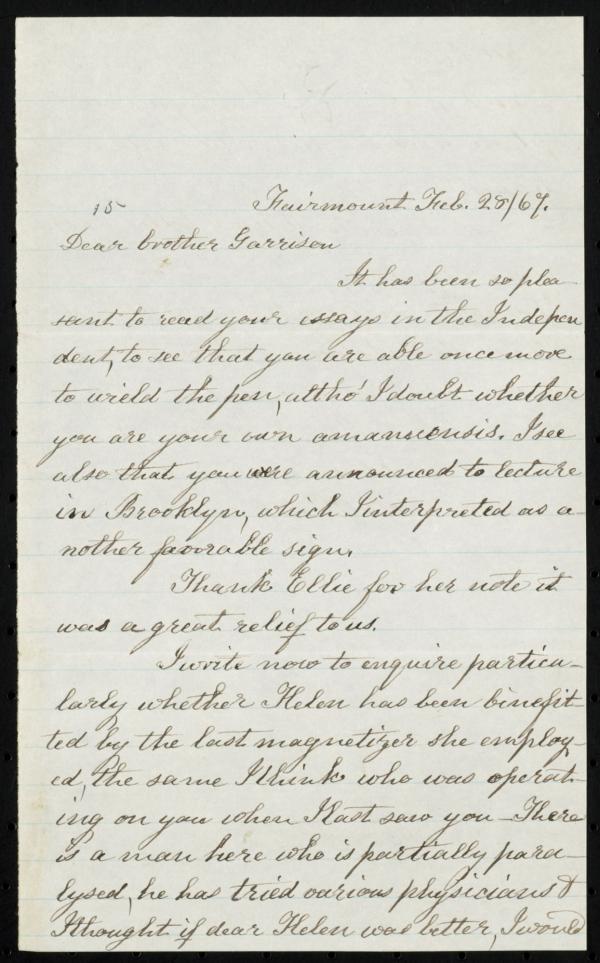 15 Fairmount Feb. 28/67.
Dear brother Garrison
It has been so plea-
sant to read your essays in the Indepen
dent, to see that you are able once more
to wield the pen, altho' I doubt whether
you are your own amanuensis. I see
also that you were announced to lecture
in Brooklyn, which I interpreted as a-
nother favorable sign.
Thank Ellie for her note it
was a great relief to us.
I write now to enquire particu-
larly whether Helen has been binefit-
ted by the last magnetizer she employ-
ed, the same I think who was operat-
ing on you when I last saw you - There
is a man here who is partially para-
lysed, he has tried various physicians &
I thought if dear Helen was better, I would